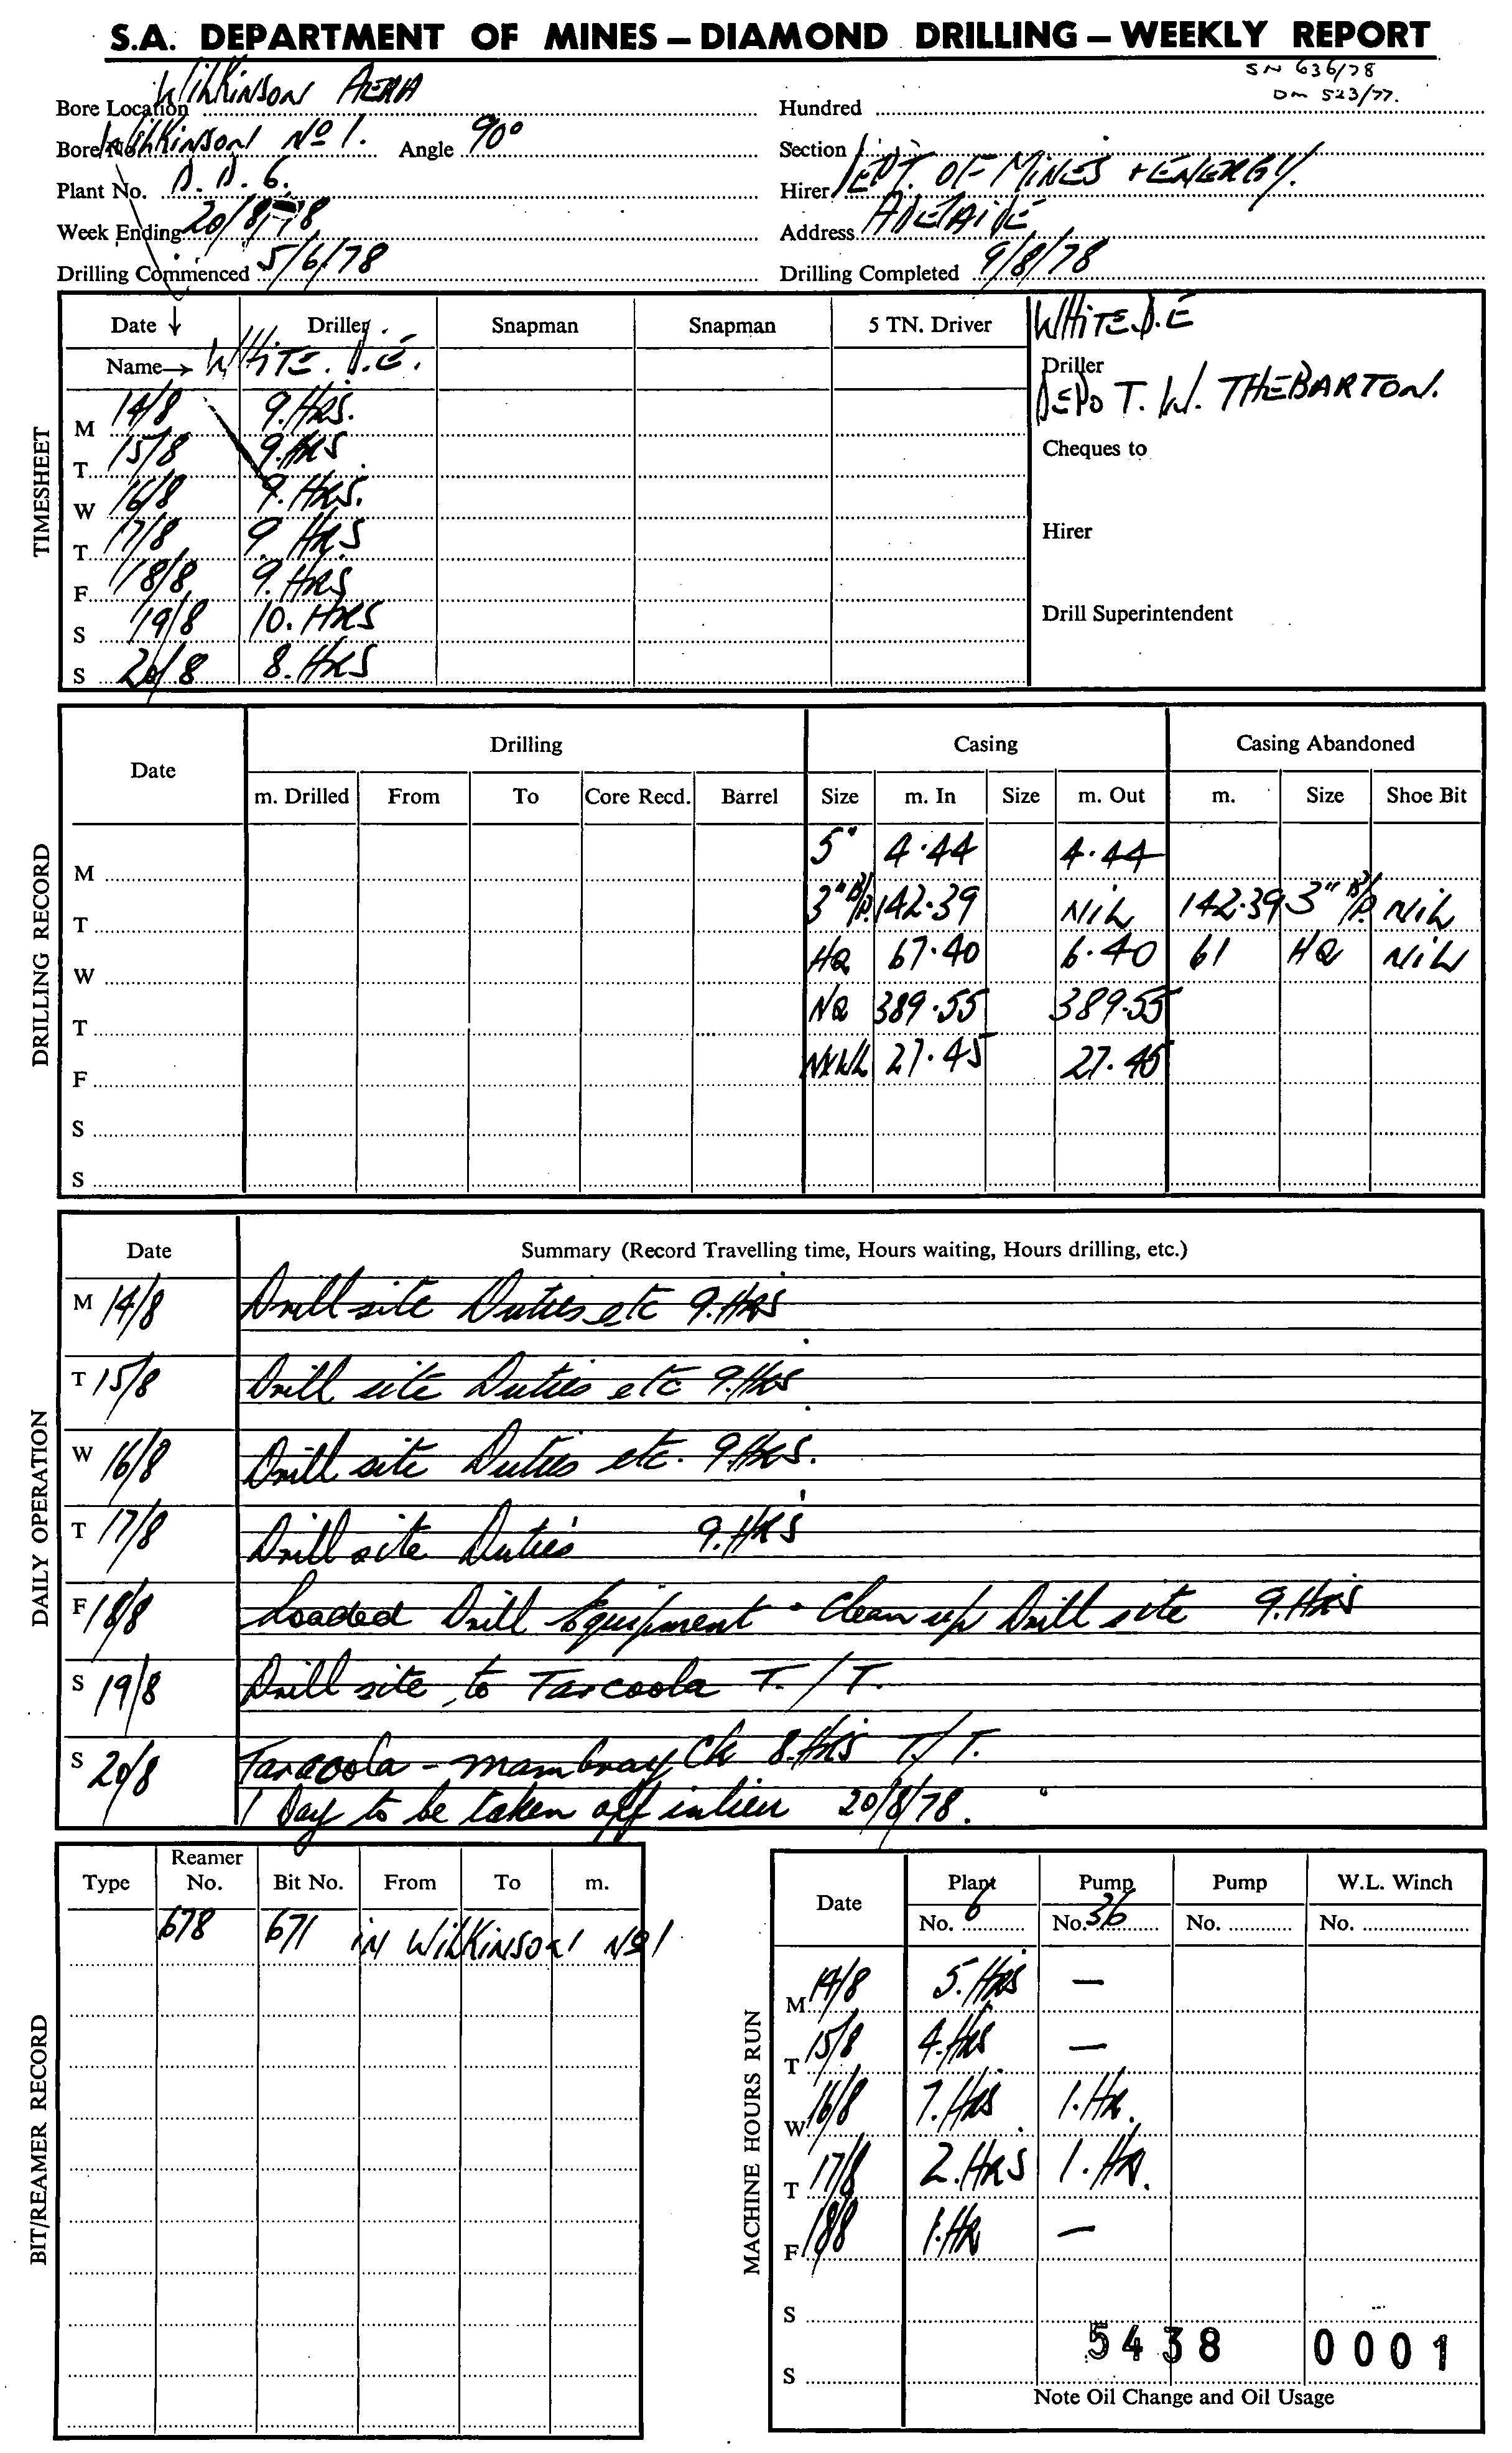 S.A. DEPARTMENT OF MINES – DIAMOND DRILLING – WEEKLY REPORT
SN 636/78
DM 523/77.
Bore Location WILKINSON AERA Hundred
Bore No. WILKINSON No 1. Angle 90° Section
Plant No. D.D.6. Hirer DEPT. OF MINES + ENERGY.
Week Ending 20/8/78 Address ADELAIDE
Drilling Commenced 5/6/78 Drilling Completed 9/8/78
TIMESHEET
Date ↓ Driller Snapman Snapman 5 TN. Driver WHITE D.E
Name→ WHITE. D.E. Driller
M 14/8 9.HRS. DEPO T. W. THEBARTON.
T 15/8 9.HRS Cheques to
W 16/8 9.HRS.
T 17/8 9 HRS Hirer
F 18/8 9.HRS
S 19/8 10.HRS Drill Superintendent
S 20/8 8.HRS
DRILLING RECORD
Date Drilling Casing Casing Abandoned
m. Drilled From To Core Recd. Barrel Size m. In Size m. Out m. Size Shoe Bit
M 5" 4.44 4.44
T 3" 142.39 NIL 142.39 3" NIL
W HQ 67.40 6.40 61 HQ NIL
T NQ 389.55 389.55
F NXWL 27.45 27.45
S
S
DAILY OPERATION
Date Summary (Record Travelling time, Hours waiting, Hours drilling, etc.)
M 14/8 Drill site Duties etc 9.HRS
T 15/8 Drill site Duties etc 9.HRS
W 16/8 Drill site Duties etc. 9HRS.
T 17/8 Drill site Duties 9.HRS
F 18/8 Loaded Drill Equipment - Clean up Drill site 9.HRS
S 19/8 Drill site to Tarcoola T./T.
S 20/8 Taracoola - mambray Ck 8.HRS T./T.
1 Day to be taken off in lieu 20/8/78.
BIT/REAMER RECORD
Type Reamer No. Bit No. From To m.
678 671 IN WILKINSON No 1
MACHINE HOURS RUN
Date Plant Pump Pump W.L. Winch
No. 6 No. 36 No. No.
M 14/8 5.HRS —
T 15/8 4.HRS —
W 16/8 7.HRS 1.HR.
T 17/8 2.HRS 1.HR.
F 18/8 1.HR —
S
5438 0001
S
Note Oil Change and Oil Usage